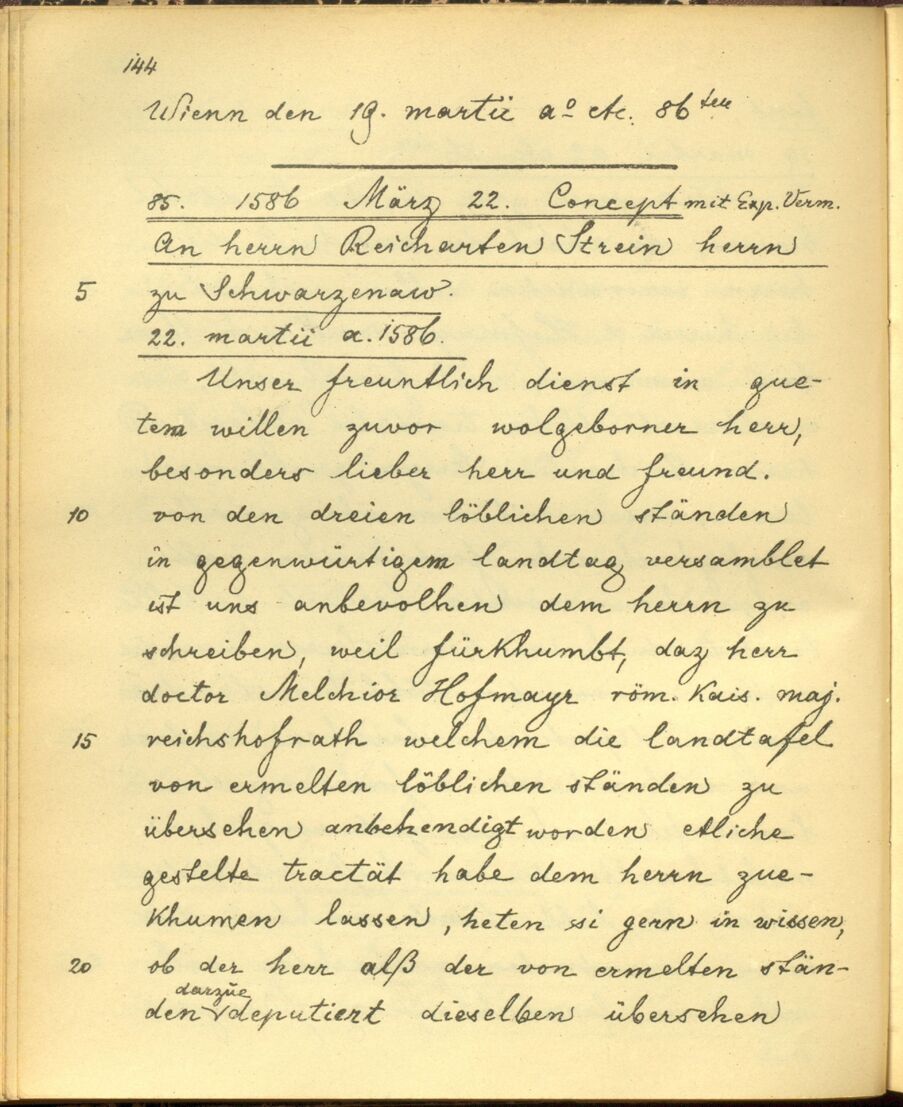 144
Wienn den 19. martii aº etc. 86ten
85. 1586 März 22. Concept mit Exp. Verm.
An herrn Reicharten Strein herrn
5 zu Schwarzenaw.
22. martii a. 1586.
Unser freuntlich dienst in gue-
tem willen zuvor wolgeborner herr,
besonders lieber herr und freund.
10 von den dreien löblichen ständen
in gegenwürtigem landtag versamblet
ist uns anbevolhen dem herrn zu
schreiben, weil fürkhumbt, daz herr
doctor Melchior Hofmayr röm. kais. maj.
15 reichshofrath welchem die landtafel
von ermelten löblichen ständen zu
übersehen anbehendigt worden etliche
gestelte tractät habe dem herrn zue-
khumen lassen, heten si gern in wissen,
20 ob der herr alß der von ermelten stän-
darzüe
den deputiert dieselben übersehen